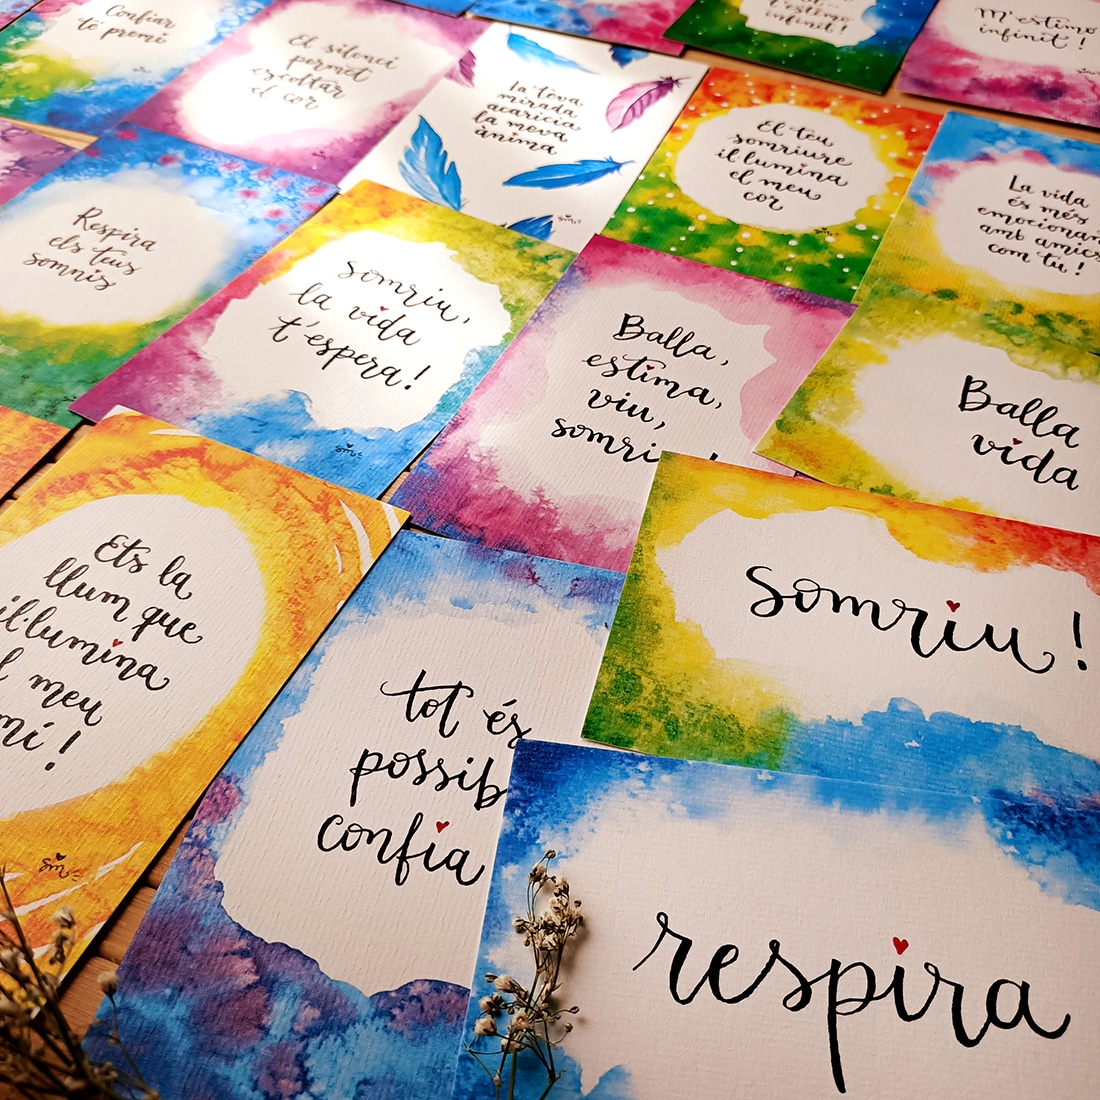 Confiar
té premi
El silenci
permet
escoltar
el cor
la teva
mirada
acaricia
la meva
ànima
t'estimo
infinit!
M'estimo
infinit!
Respira
els teus
somnis
somriu,
la vida
t'espera!
sm
Balla,
estima,
viu,
somri
El teu
somriure
il·lumina
el meu
cor
La vida
és més
emocionan
amb amics
com tu!
Balla
vida
Ets la
llum que
il·lumina
l meu
mí!
sm
tot és
possib
confia
somriu!
respira